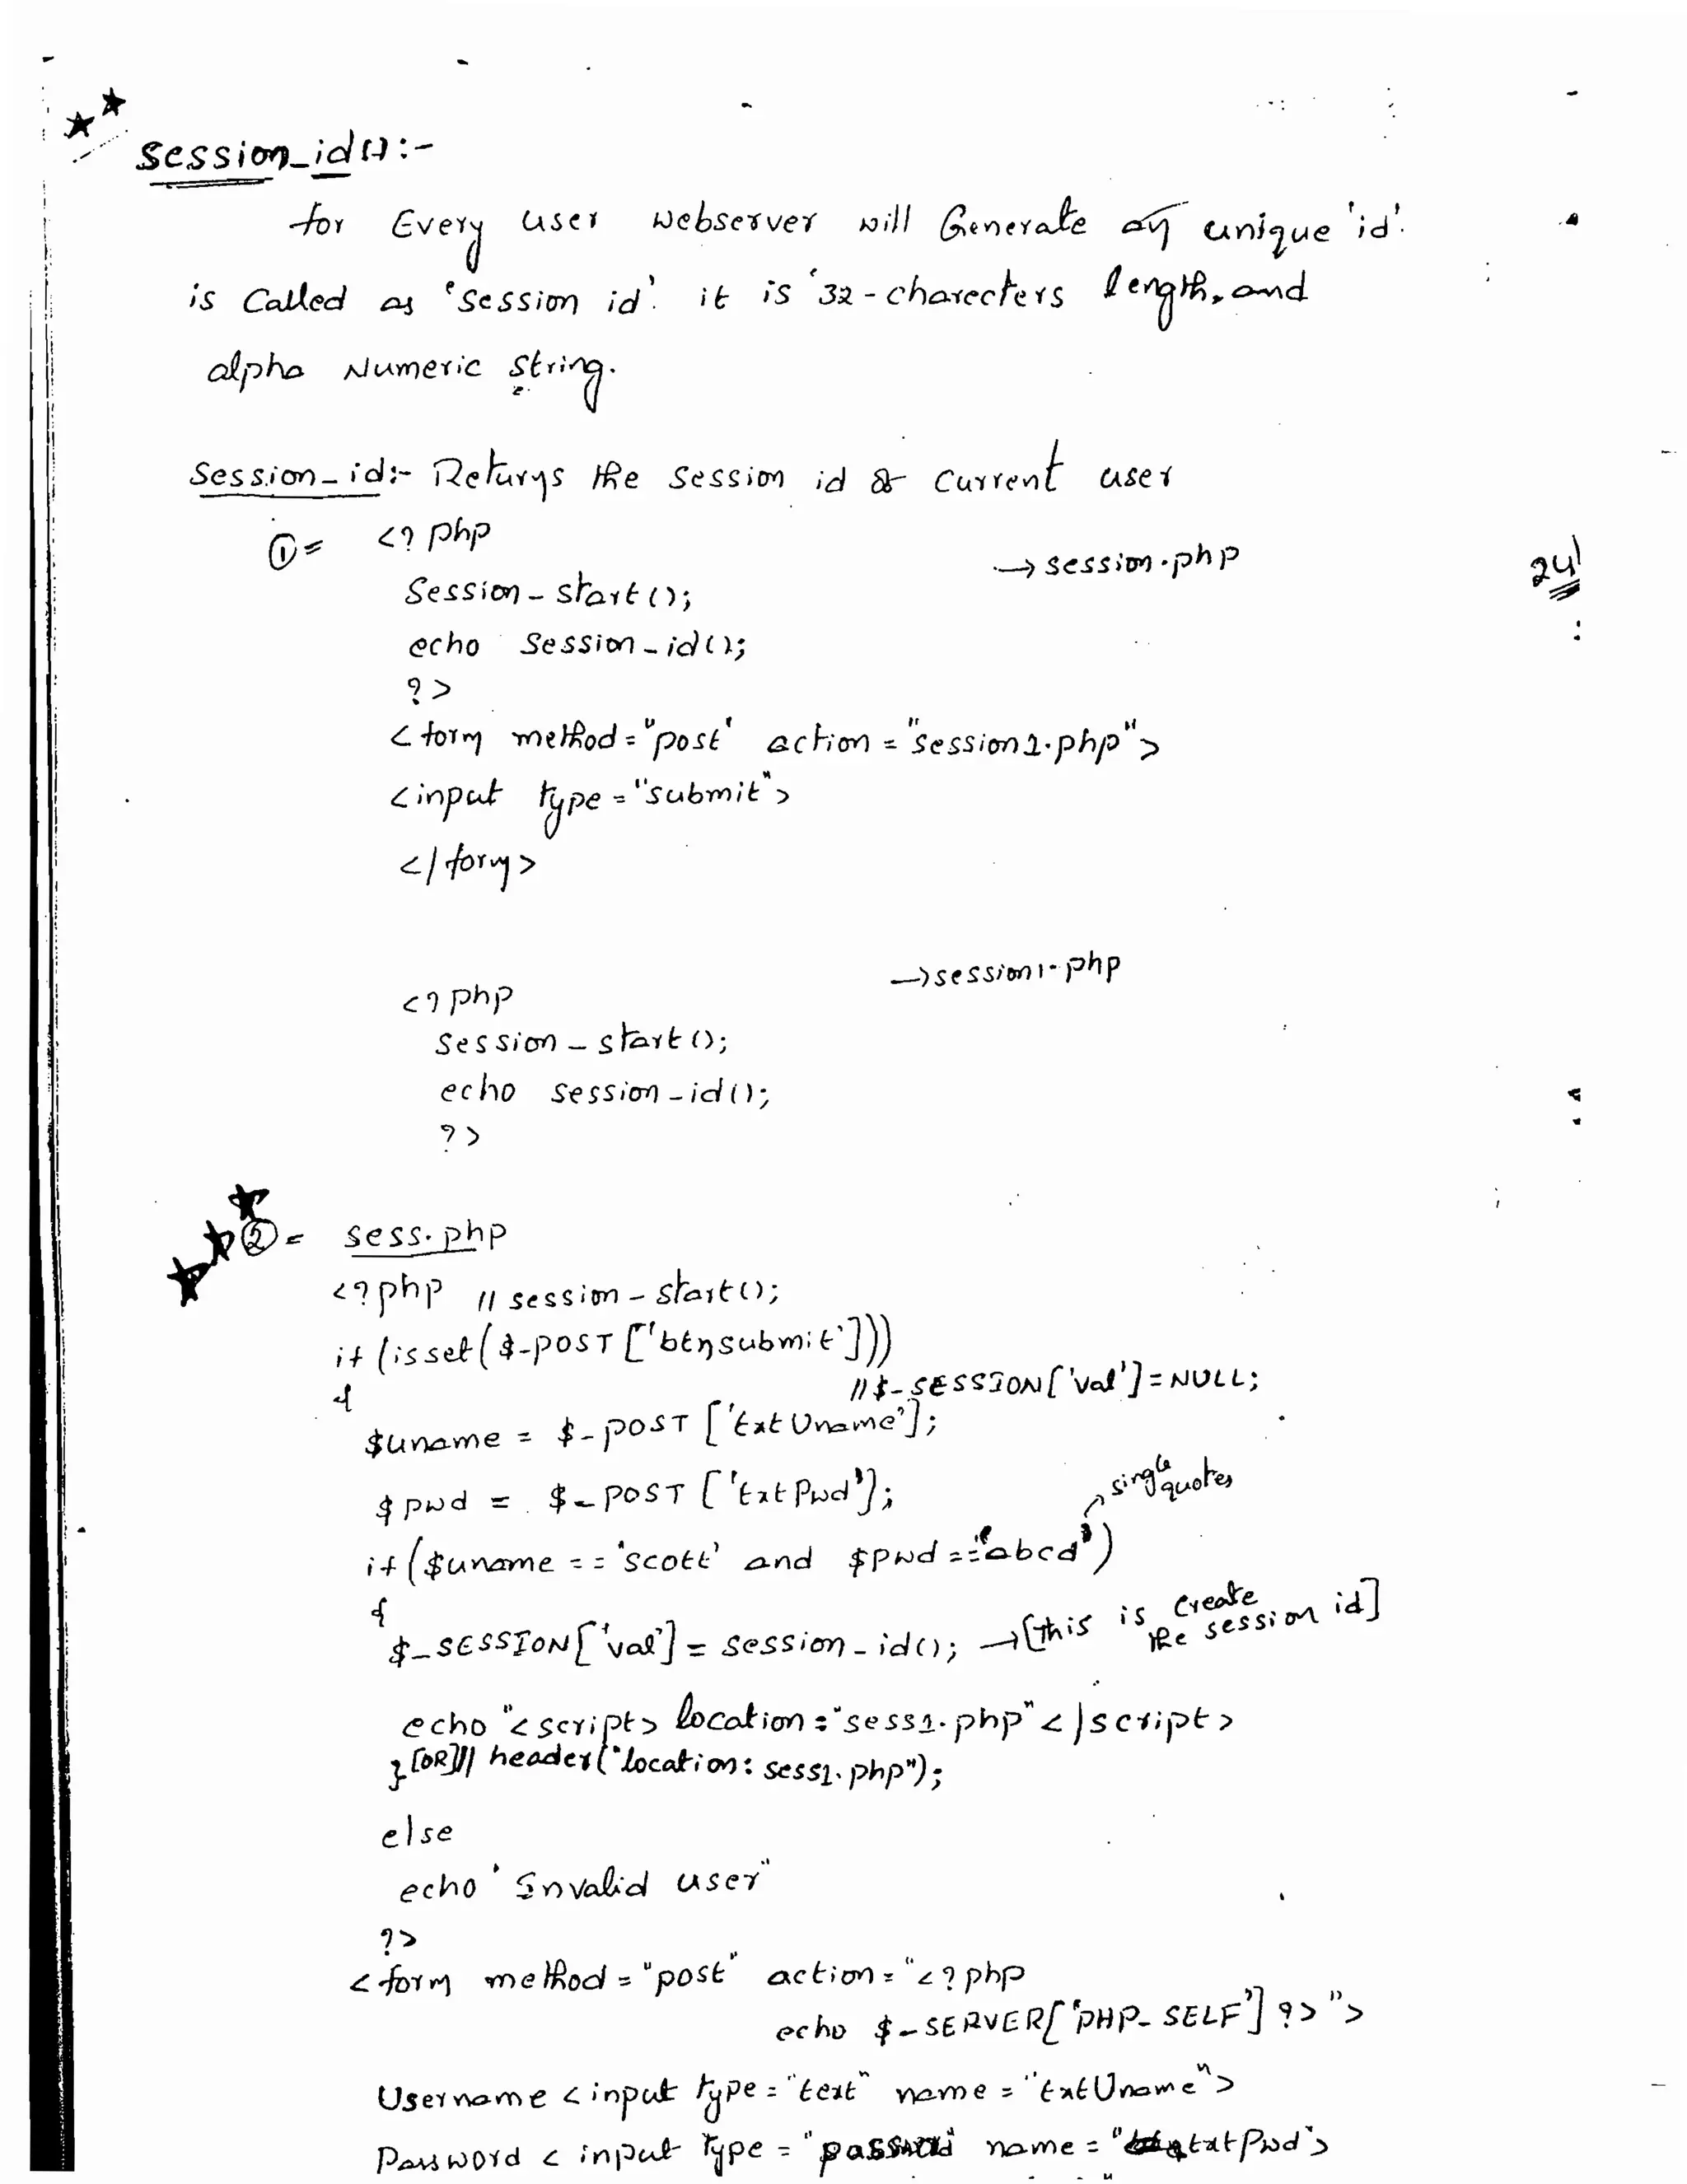 Session_id():-
for Every user webserver will Generate an unique 'id'.
is Called as 'Session id'. it is '32-charecters length, and
alpha Numeric string.
Session_id:- Returns the session id of current user
①= <? php
→ session.php
24
Session_start();
echo Session_id();
?>
<form method="post' action="session1.php">
<input type="submit">
</form>
→ session1.php
<? php
Session_start();
echo session_id();
?>
②= sess.php
<?php // session_start();
if (isset($_POST['btnsubmit']))
{
//$_SESSION['val']=NULL;
$uname = $_POST['txtUname'];
$pwd = $_POST['txtPwd'];
single quotes
if($uname == 'scott' and $pwd=='abcd')
{
$_SESSION['val'] = session_id(); → [this is create the session id]
echo "<script> location="sess1.php"</script>
} [OR]// header("location: sess1.php");
else
echo ' Invalid user"
?>
<form method="post" action="<?php
echo $_SERVER['PHP_SELF'] ?>">
Username <input type="text" name="txtUname">
Password <input type="password" name="txtPwd">